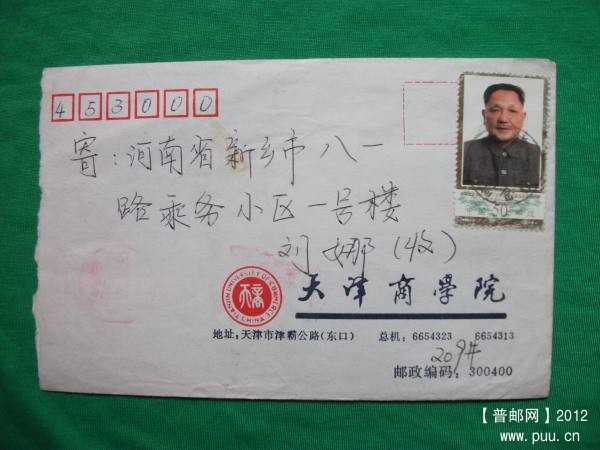 453000
寄:河南省新乡市八一
路乘务小区一号楼
刘娜(收)
天津商学院
TIANJIN UNIVERSITY OF COMMERCE
CHINA
地址:天津市津霸公路(东口) 总机:6654323 6654313
209#
邮政编码:300400
【普邮网】2012
www.puu.cn